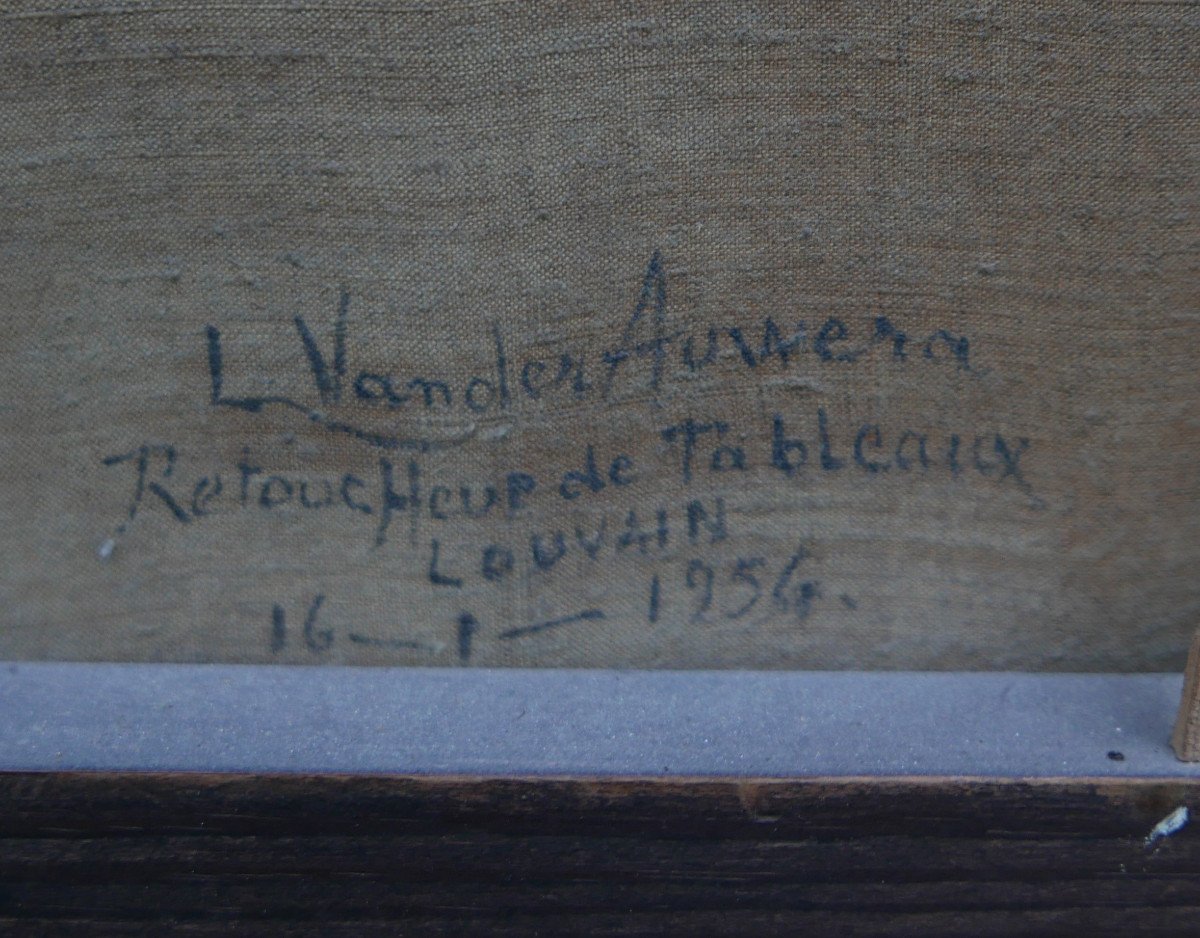 L VanderAuwera
RetoucHeur de Tableaux
LOUVAIN
16 — 1 — 1954.